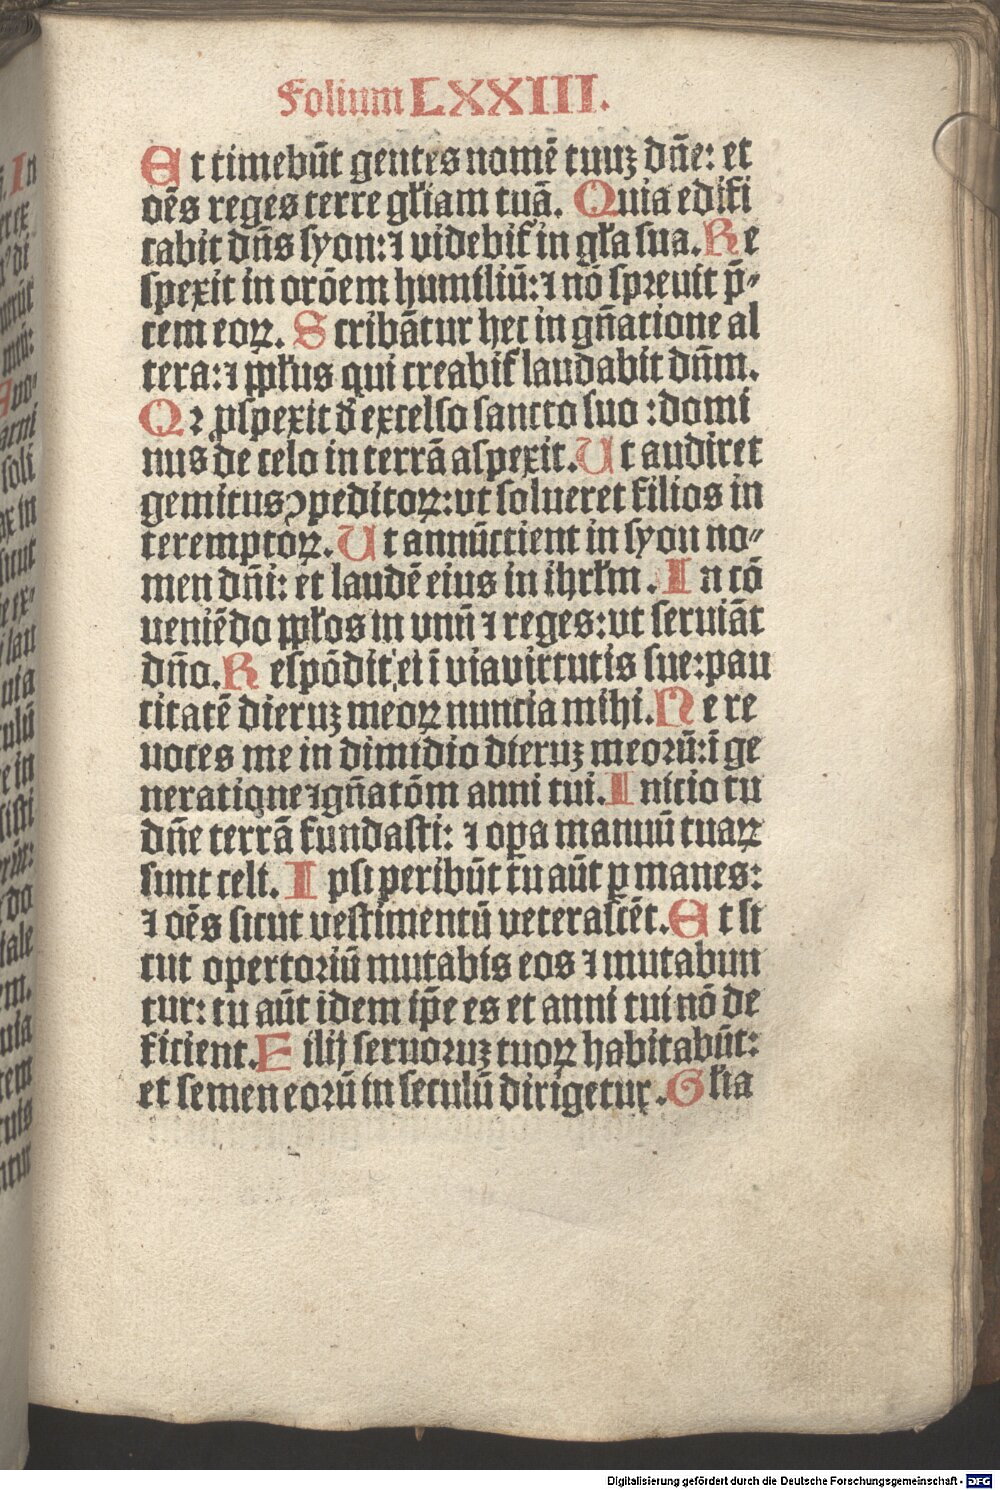 Folium LXXIII.
Et timebūt gentes nomē tuuꝫ dn̄e: et
oēs reges terre gl̄iam tuā. Quia edifi
cabit dn̄s syon: ⁊ videbit᷑ in gl̄a sua. Re
spexit in orōem humiliū: ⁊ nō spreuit p̄-
cem eoꝝ. Scribātur hec in gn̄atione al
tera: ⁊ ppl̄us qui creabit᷑ laudabit dn̄m.
Qꝛ ꝓspexit d̓ excelso sancto suo : domi
nus de celo in terrā aspexit. Ut audiret
gemitus ꝯpeditoꝝ: vt solueret filios in
teremptoꝝ. Ut annūctient in syon no-
men dn̄i: et laudē eius in ihrl̄m. In cō
ueniēdo ppl̄os in vnū ⁊ reges: vt seruiāt
dn̄o. Respōdit ei ī via virtutis sue: pau
citatē dieruꝫ meoꝝ nuncia mihi. Ne re
uoces me in dimidio dieruꝫ meorū: ī ge
neratione ⁊ gn̄atōm anni tui. Initio tu
dn̄e terrā fundasti: ⁊ oꝑa manuū tuaꝝ
sunt celi. Ipsi peribūt tu aūt ꝑmanes:
⁊ oēs sicut vestimentū veterascēt. Et si
cut opertoriū mutabis eos ⁊ mutabun
tur: tu aūt idem ip̄e es et anni tui nō de
ficient. Filij seruoruꝫ tuoꝝ habitabūt:
et semen eorū in seculū dirigetur. Gl̄ia
Digitalisierung gefördert durch die Deutsche Forschungsgemeinschaft - DFG